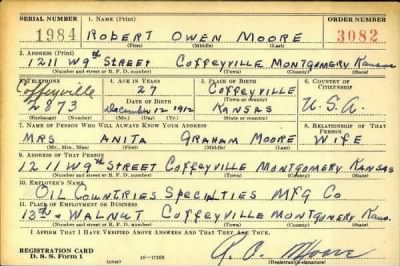 SERIAL NUMBER 1. NAME (Print) ORDER NUMBER
1984 ROBERT OWEN MOORE 3082
(First) (Middle) (Last)
2. ADDRESS (Print)
1211 W 9th STREET COFFEYVILLE MONTGOMERY KANSAS
(Number and street or R. F. D. number) (Town) (County) (State)
3. TELEPHONE 4. AGE IN YEARS 5. PLACE OF BIRTH 6. COUNTRY OF CITIZENSHIP
Coffeyville 27 COFFEYVILLE
(Town or county)
DATE OF BIRTH
2873 December 12 1912 KANSAS U.S.A.
(Exchange) (Number) (Mo.) (Day) (Yr.) (State or country)
7. NAME OF PERSON WHO WILL ALWAYS KNOW YOUR ADDRESS 8. RELATIONSHIP OF THAT PERSON
MRS ANITA GRAHAM MOORE WIFE
(Mr., Mrs., Miss) (First) (Middle) (Last)
9. ADDRESS OF THAT PERSON
1211 W 9th STREET COFFEYVILLE MONTGOMERY KANSAS
(Number and street or R. F. D. number) (Town) (County) (State)
10. EMPLOYER'S NAME
OIL COUNTRIES SPECIALTIES MFG CO
11. PLACE OF EMPLOYMENT OR BUSINESS
13th & WALNUT COFFEYVILLE MONTGOMERY KANS.
(Number and street or R. F. D. number) (Town) (County) (State)
I AFFIRM THAT I HAVE VERIFIED ABOVE ANSWERS AND THAT THEY ARE TRUE.
REGISTRATION CARD
D. S. S. Form 1 (over) 16—17105 R. O. Moore
(Registrant's signature)